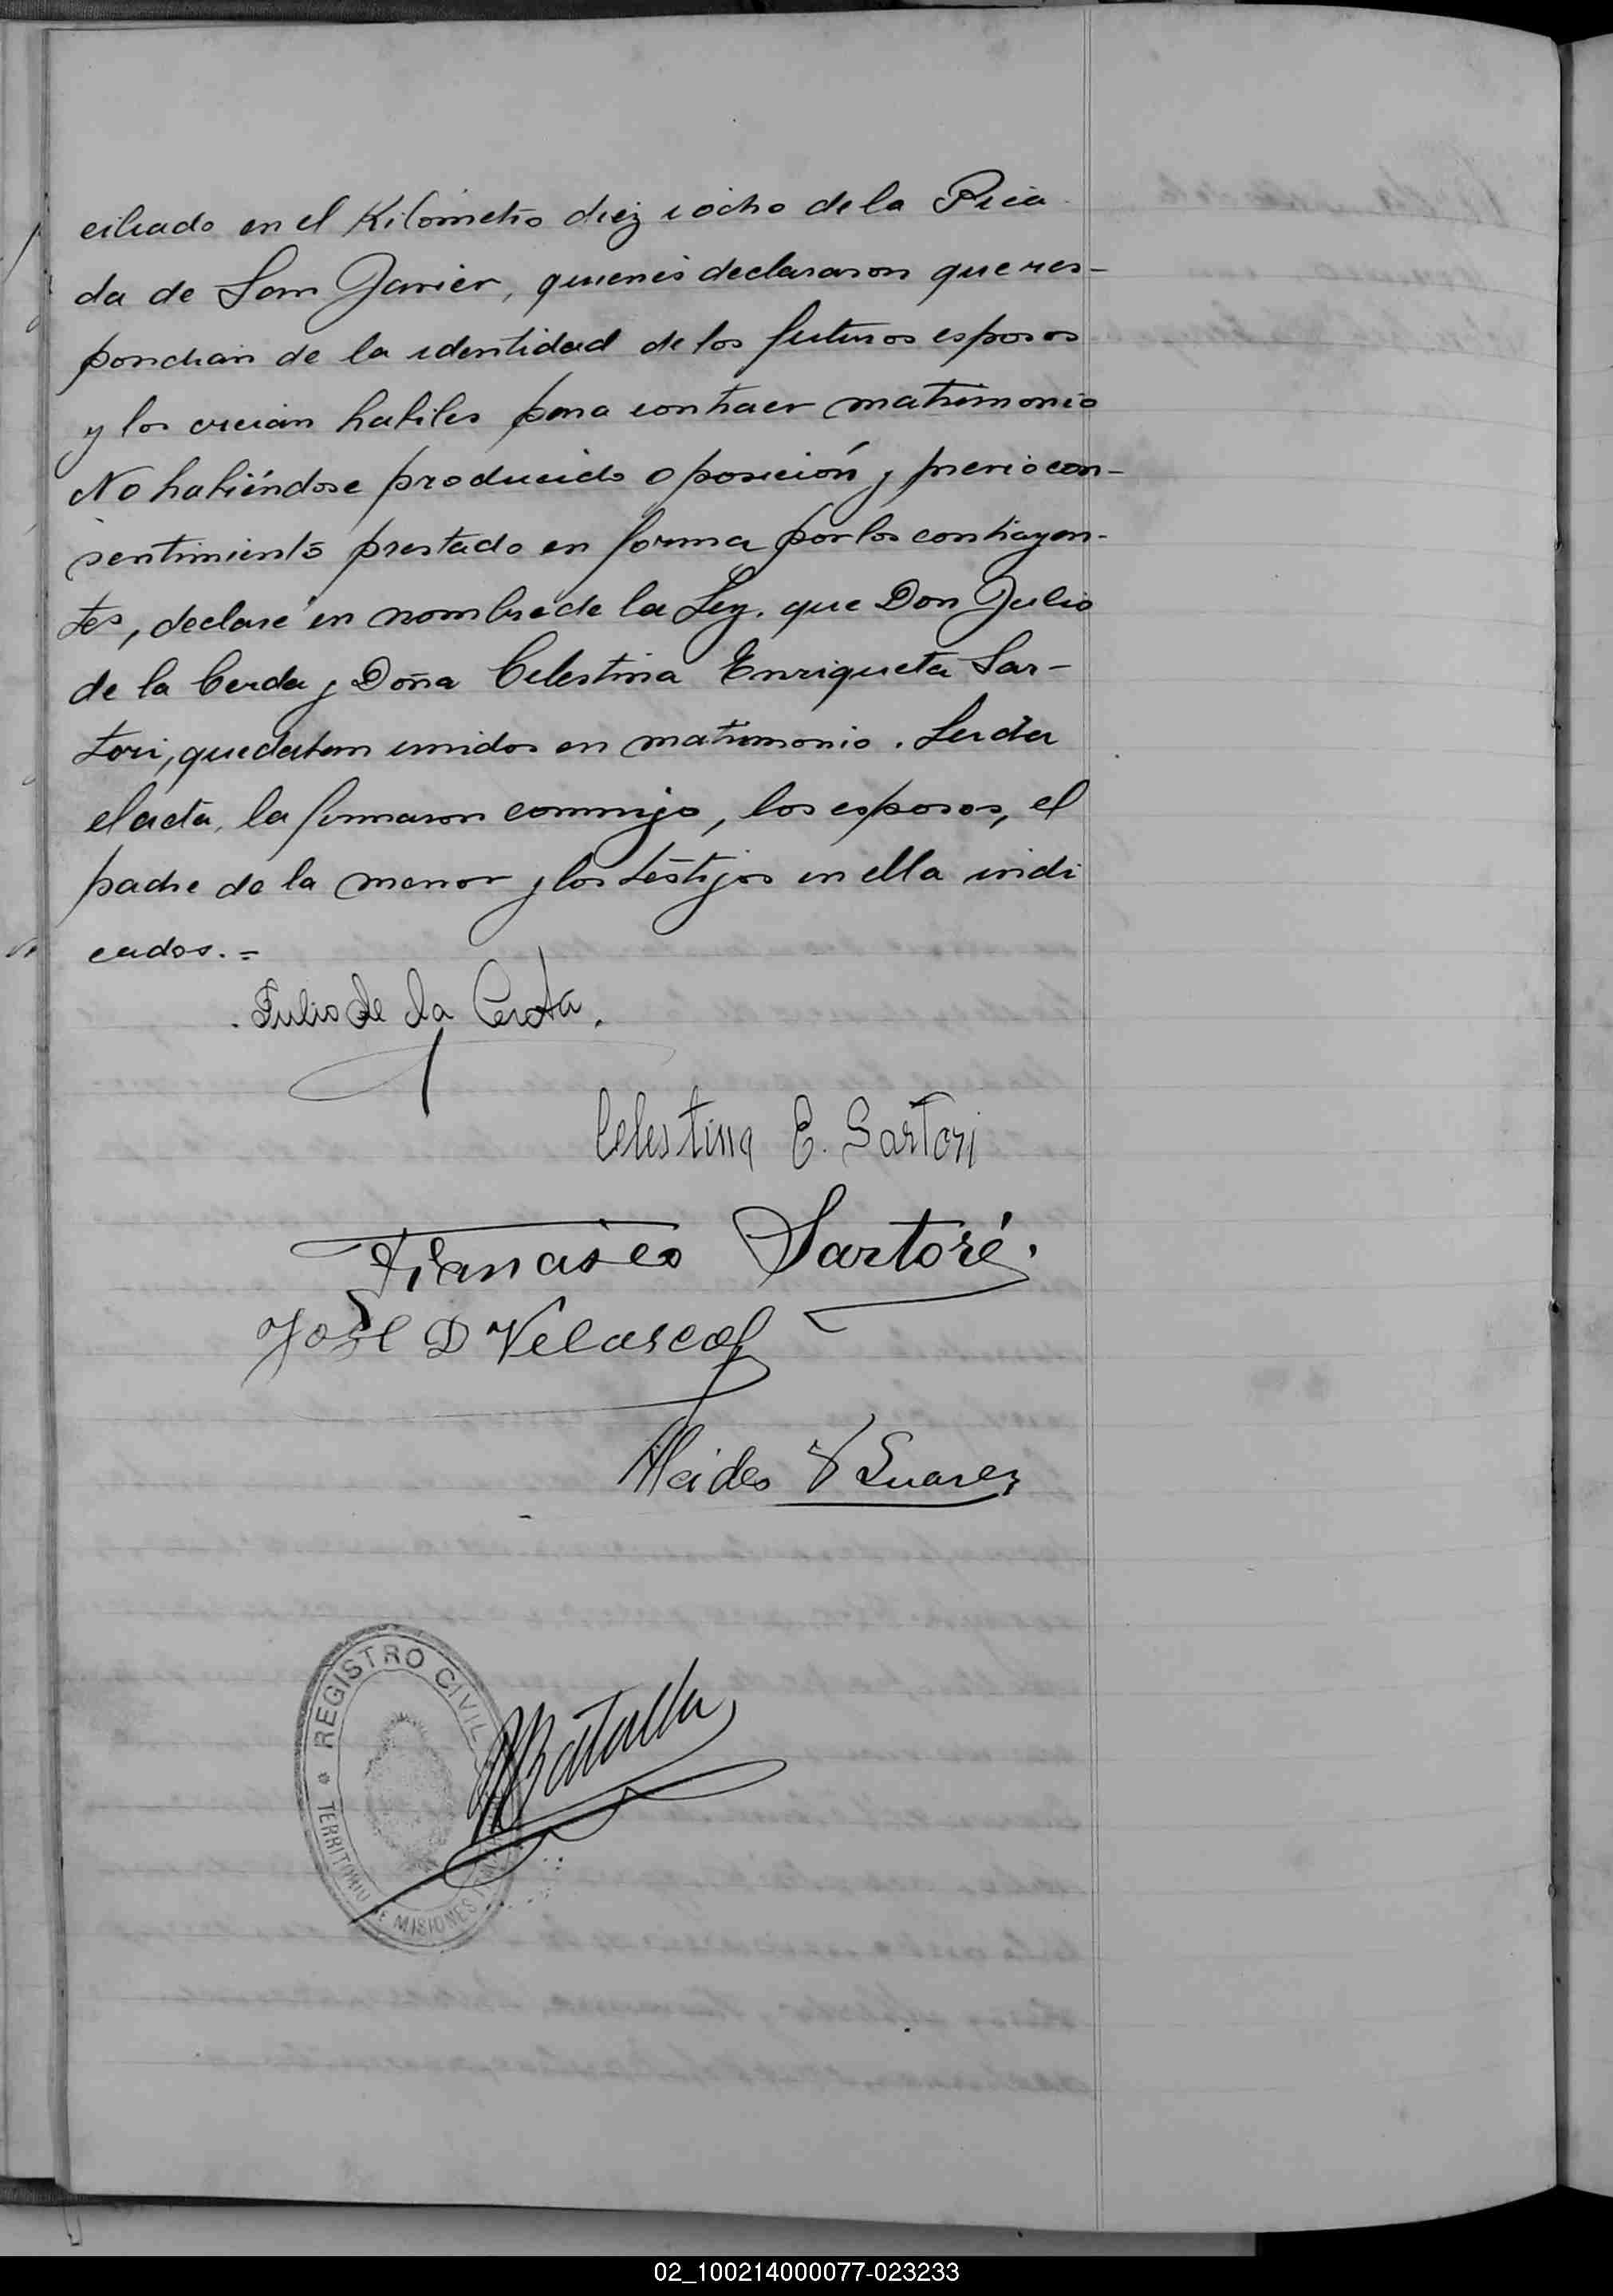 ciliado en el Kilómetro diez i ocho de la Pica
da de San Javier, quienes declararon que res-
pondian de la identidad de los futuros esposos
y los creian habiles para contraer matrimonio
No habiéndose producido oposición y previo con-
sentimiento prestado en forma por los contrayen-
tes, declaré en nombre de la Ley, que Don Julio
de la Cerda y Doña Celestina Enriqueta Sar-
tori, quedaban unidos en matrimonio. Leida
el acta, la firmaron conmigo, los esposos, el
padre de la menor y los testigos en ella indi
cados.=
Julio de la Cerda.
Celestina E. Sartori
Francisco Sartori
José D Velasco
Alcides V Suarez
REGISTRO CIVIL
TERRITORIO DE MISIONES
02_100214000077-023233